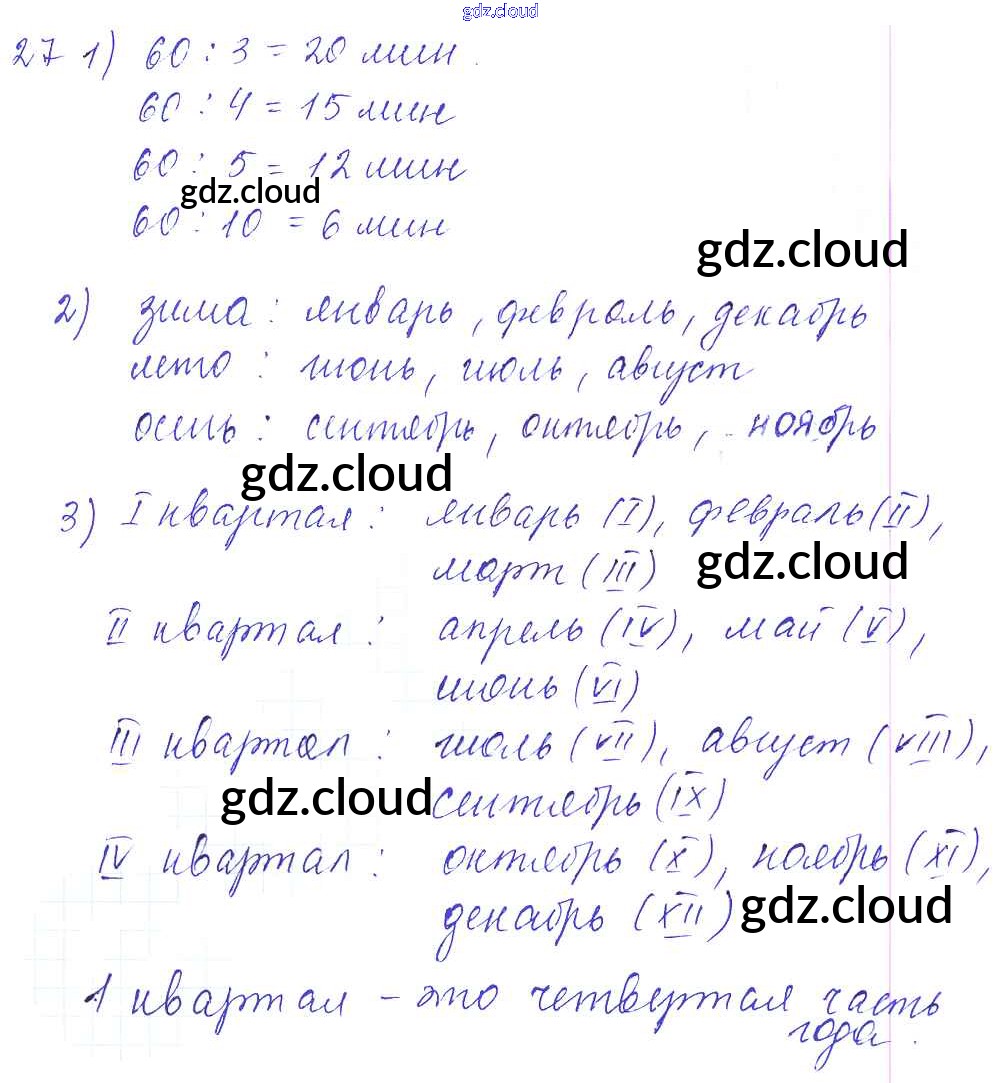 gdz.cloud
27 1) 60 : 3 = 20 мин.
60 : 4 = 15 мин
60 : 5 = 12 мин
gdz.cloud
60 : 10 = 6 мин
gdz.cloud
2) зима : январь, февраль, декабрь
лето : июнь, июль, август
осень : сентябрь, октябрь, ноябрь
gdz.cloud
3) I квартал : январь (I), февраль (II),
март (III)
gdz.cloud
II квартал : апрель (IV), май (V),
июнь (VI)
III квартал : июль (VII), август (VIII),
gdz.cloud
сентябрь (IX)
IV квартал : октябрь (X), ноябрь (XI),
декабрь (XII)
gdz.cloud
1 квартал - это четвертая часть
года.